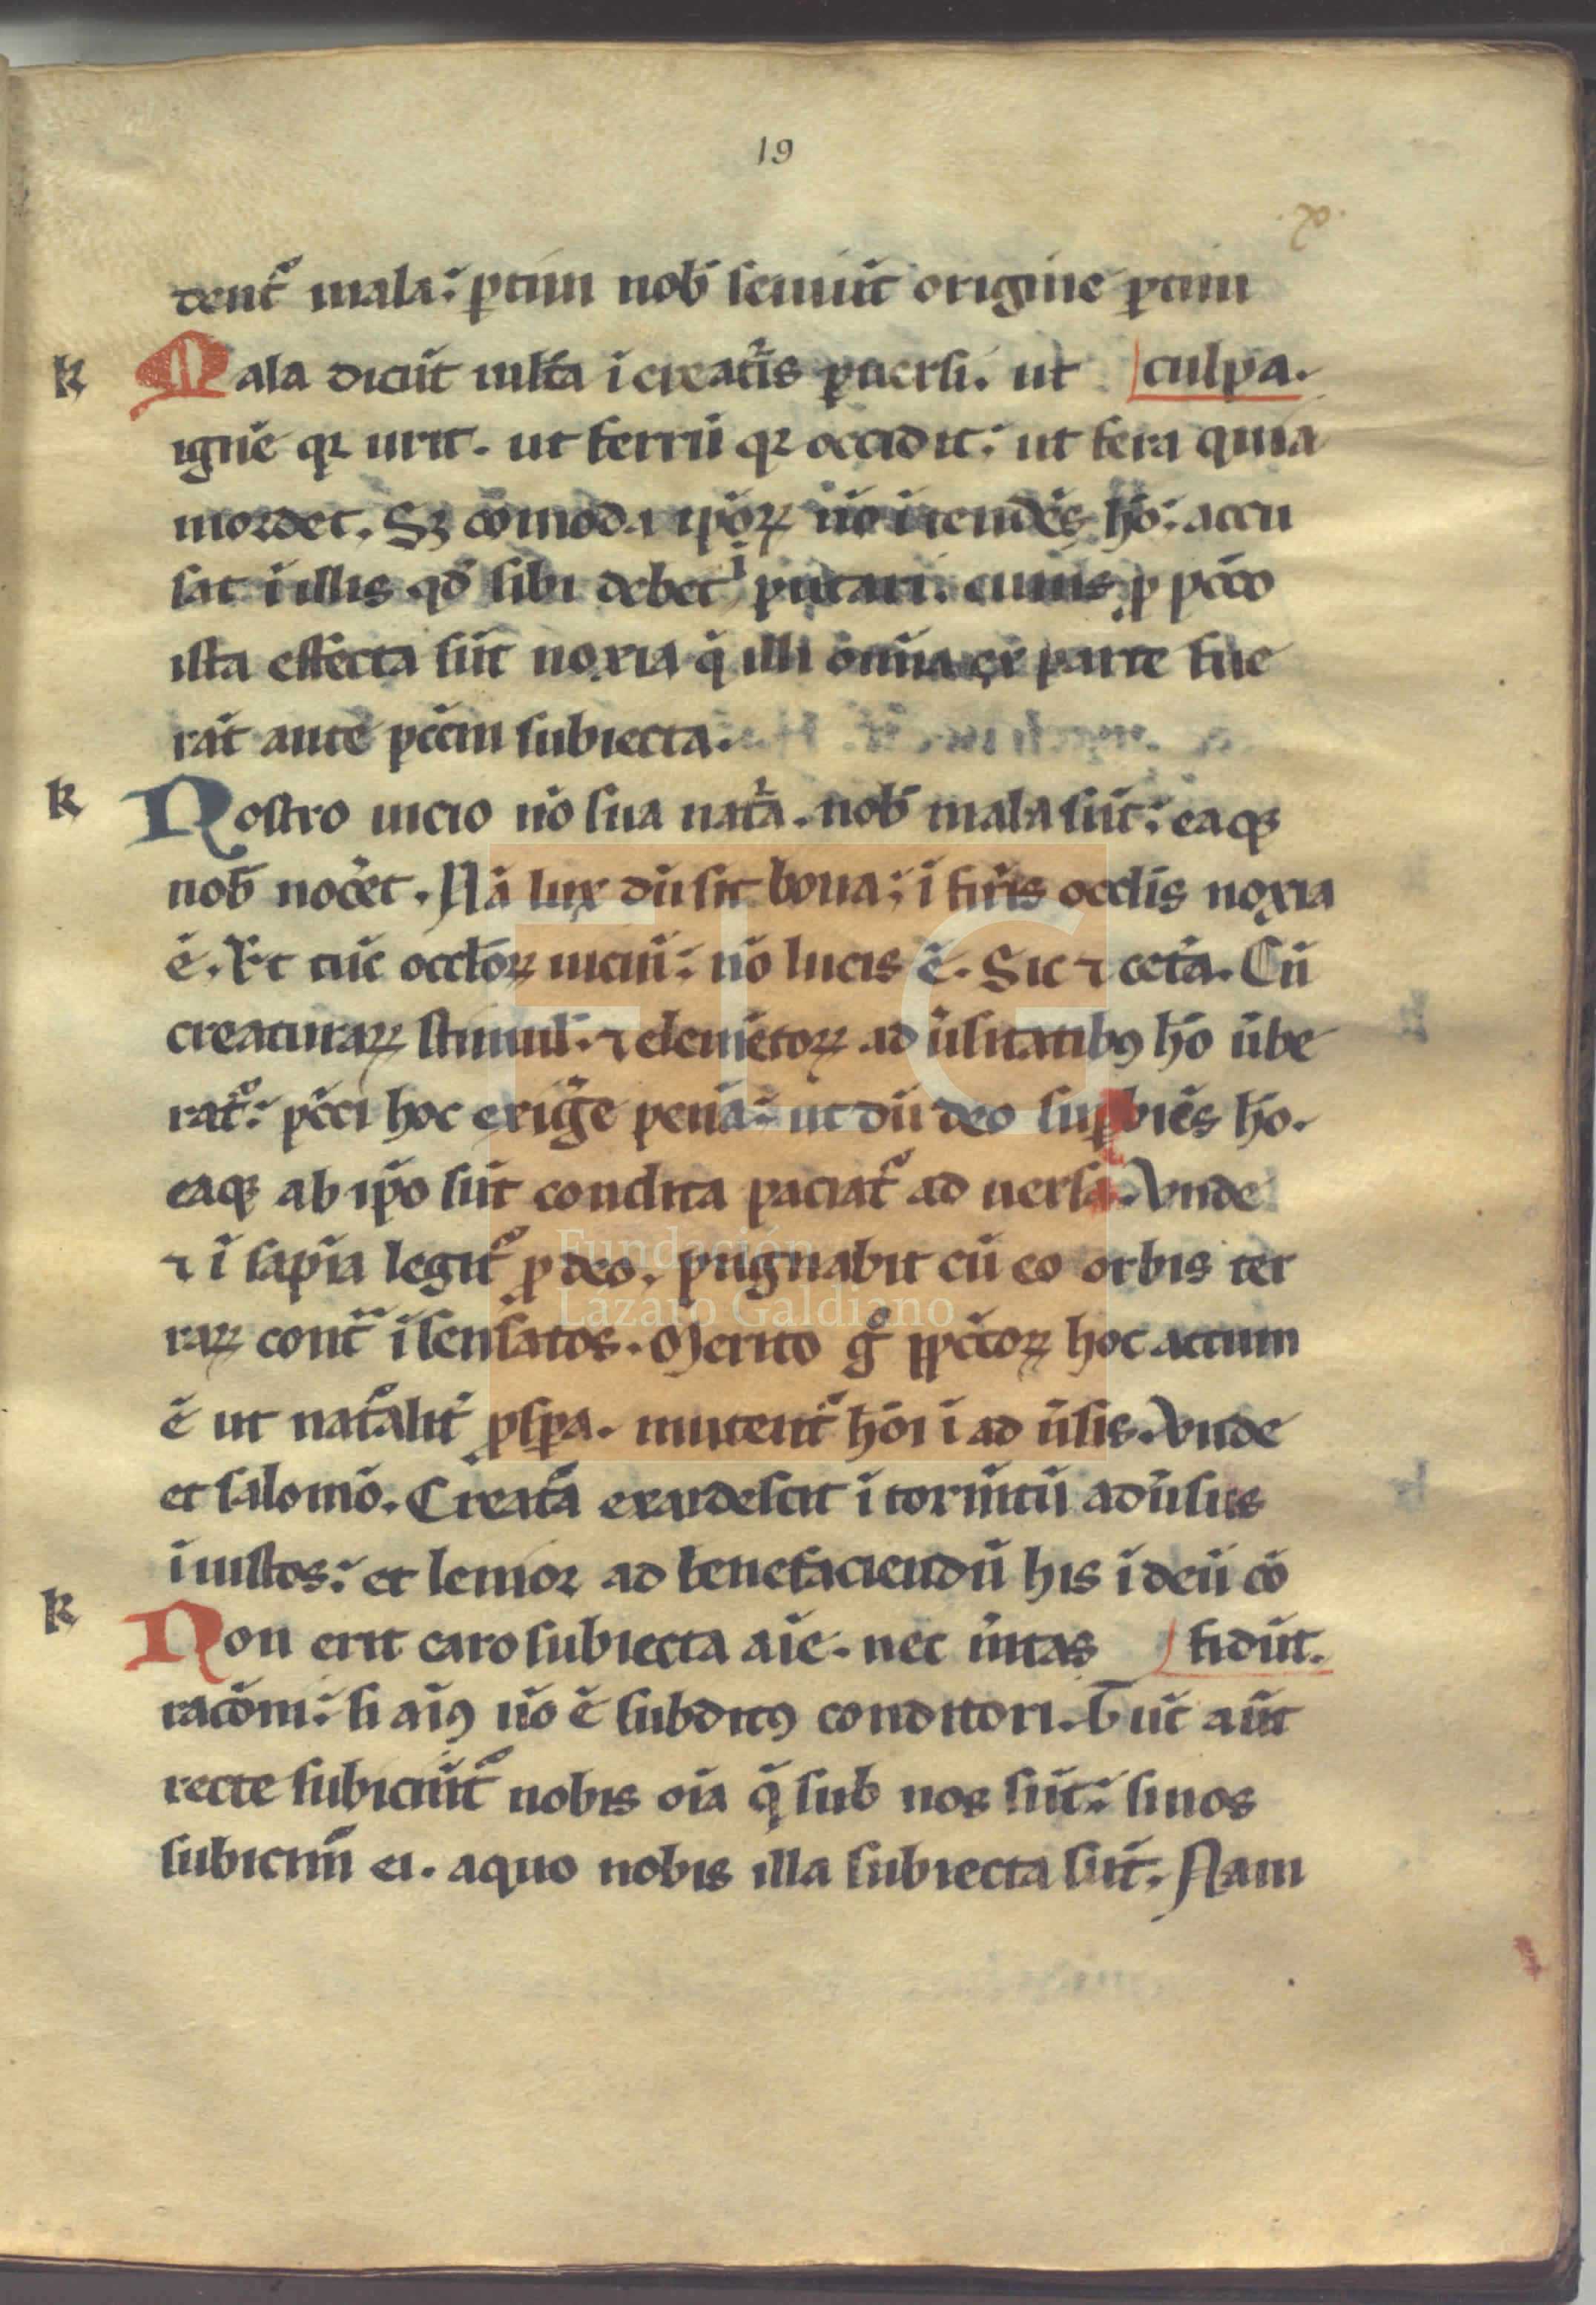 19
.x.
dent᷑ mala: ptim nob̄ seruiūt origine ptim
k Mala dicūt ml̄ta ī creatīs puersi. ut culpa.
ignē qꝛ urit. ut ferrū qꝛ occidit: ut fera quia
mordet. Sꝫ cōmoda ip̄oꝝ nō ītendēs hō: accu
sat ī illis qd̄ sibi debet īputari. cuius ꝓ pctō
ista effecta sūt noxia q̄ illi om̄ia ex parte fue
rāt ante pctm̄ subiecta.
k Nostro uicio nō sua nat̄a. nob̄ mala sūt: eaqꝫ
nob̄ nocēt. Nā lux dū sit bona: ī firmis oculis noxia
ē. Et tūc ocl̄oꝝ uiciū: nō lucis ē. Sic ⁊ cet̄a. Cū
creaturaꝝ stimul̄. ⁊ elemētoꝝ ad ūsitatibꝰ hō ūbe
rat᷑: pcc̄i hoc exiḡe penā: ut dū deo suꝑbiēs hō.
eaqꝫ ab ip̄o sūt condita paciat᷑ ad uersa. Vnde
⁊ ī sap̄ia legit᷑ ꝓ deo. pugnabit cū eo orbis ter
raꝝ cont̄ īsensatos. Merito gͦ ꝑ pctōꝝ hoc actum
ē ut nat̄alit̄ ꝓspa. mutent᷑ hōi ī ad ūsis. Vnde
et salomō. Creat̄a exardescit ī torm̄tū adūsus
īiustos: et lenior ad benefaciendū his ī deū cō
k Non erit caro subiecta aīe. nec ūitas fidūt.
racōni: si aīꝰ nō ē subditꝰ conditori. Tūc aūt
recte subiciūt᷑ nobis oīa q̄ sub nos sūt: si nos
subicim̄ ei. aquo nobis illa subiecta sūt. Nam
Fundación
Lázaro Galdiano